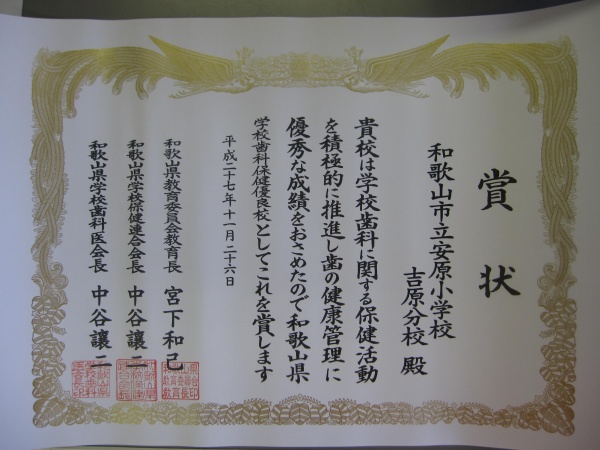 賞状
和歌山市立安原小学校
吉原分校 殿
貴校は学校歯科に関する保健活動
を積極的に推進し歯の健康管理に
優秀な成績をおさめたので和歌山県
学校歯科保健優良校としてこれを賞します
平成二十七年十一月二十六日
和歌山県教育委員会教育長 宮下和己
和歌山県学校保健連合会長 中谷譲二
和歌山県学校歯科医会長 中谷譲二